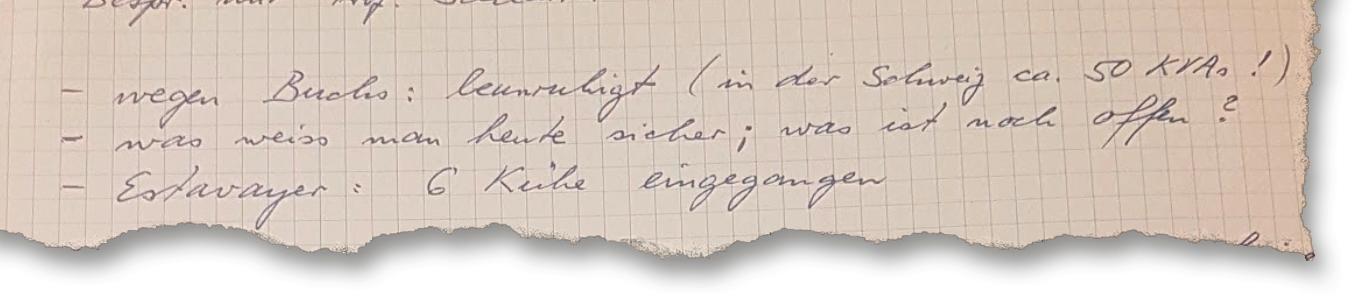 - wegen Buchs: beunruhigt (in der Schweiz ca. 50 KVAs!)
- was weiss man heute sicher; was ist noch offen?
- Estavayer: 6 Kühe eingegangen